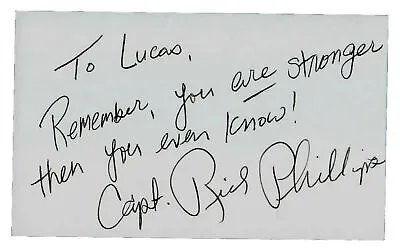 To Lucas,
Remember, you are stronger
then you even know!
Capt. Rich Phillips